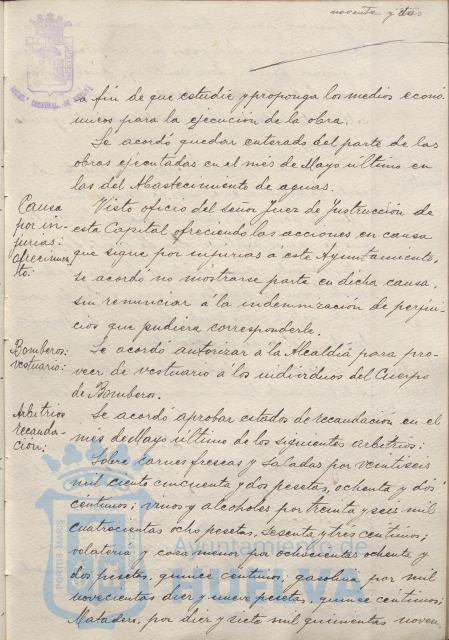 noventa y dos
a fin de que estudie y proponga los medios econó-
micos para la ejecución de la obra.
Se acordó quedar enterado del parte de las
obras ejecutadas en el mes de Mayo último en
las del Abastecimiento de aguas.
Causa
por in-
jurias:
ofrecimien-
to:
Visto oficio del señor Juez de Instrucción de
esta Capital ofreciendo las acciones en causa
que sigue por injurias á este Ayuntamiento,
se acordó no mostrarse parte en dicha causa,
sin renunciar á la indemnización de perjui-
cios que pudiera corresponderle.
Bomberos:
vestuario:
Se acordó autorizar á la Alcaldía para pro-
veer de vestuario á los individuos del Cuerpo
de Bomberos.
Arbitrios
recauda-
ción:
Se acordó aprobar estados de recaudación en el
mes de Mayo último de los siguientes arbitrios:
Sobre carnes frescas y saladas por veintiseis
mil ciento cincuenta y dos pesetas, ochenta y dos
céntimos; vinos y alcoholes por treinta y seis mil
cuatrocientas ocho pesetas, sesenta y tres céntimos;
volatería y caza menor por ochocientas ochenta y
dos pesetas, quince céntimos; gasolina por mil
novecientas diez y nueve pesetas, quince céntimos;
Matadero, por diez y siete mil quinientas noven
Ayuntamiento de
HUELVA
PORTUS MARIS